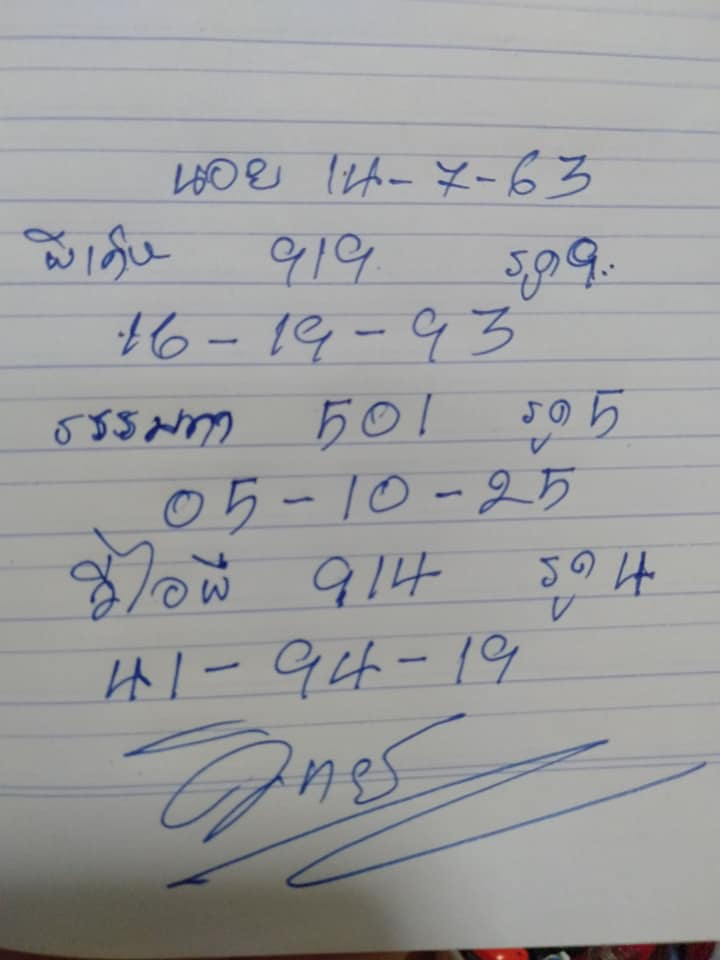 นอย 14-7-63
919 รูด 9
16-19-93
ธรรมดา 501 รูด 5
05-10-25
วีไอพี 914 รูด 4
41-94-19